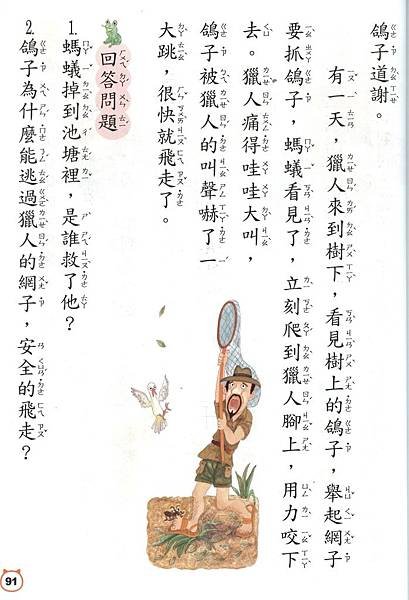 鴿子道謝。
有一天，獵人來到樹下，看見樹上的鴿子，舉起網子
要抓鴿子，螞蟻看見了，立刻爬到獵人腳上，用力咬下
去。獵人痛得哇哇大叫，
鴿子被獵人的叫聲嚇了一
大跳，很快就飛走了。
回答問題
1.螞蟻掉到池塘裡，是誰救了他？
2.鴿子為什麼能逃過獵人的網子，安全的飛走？
91